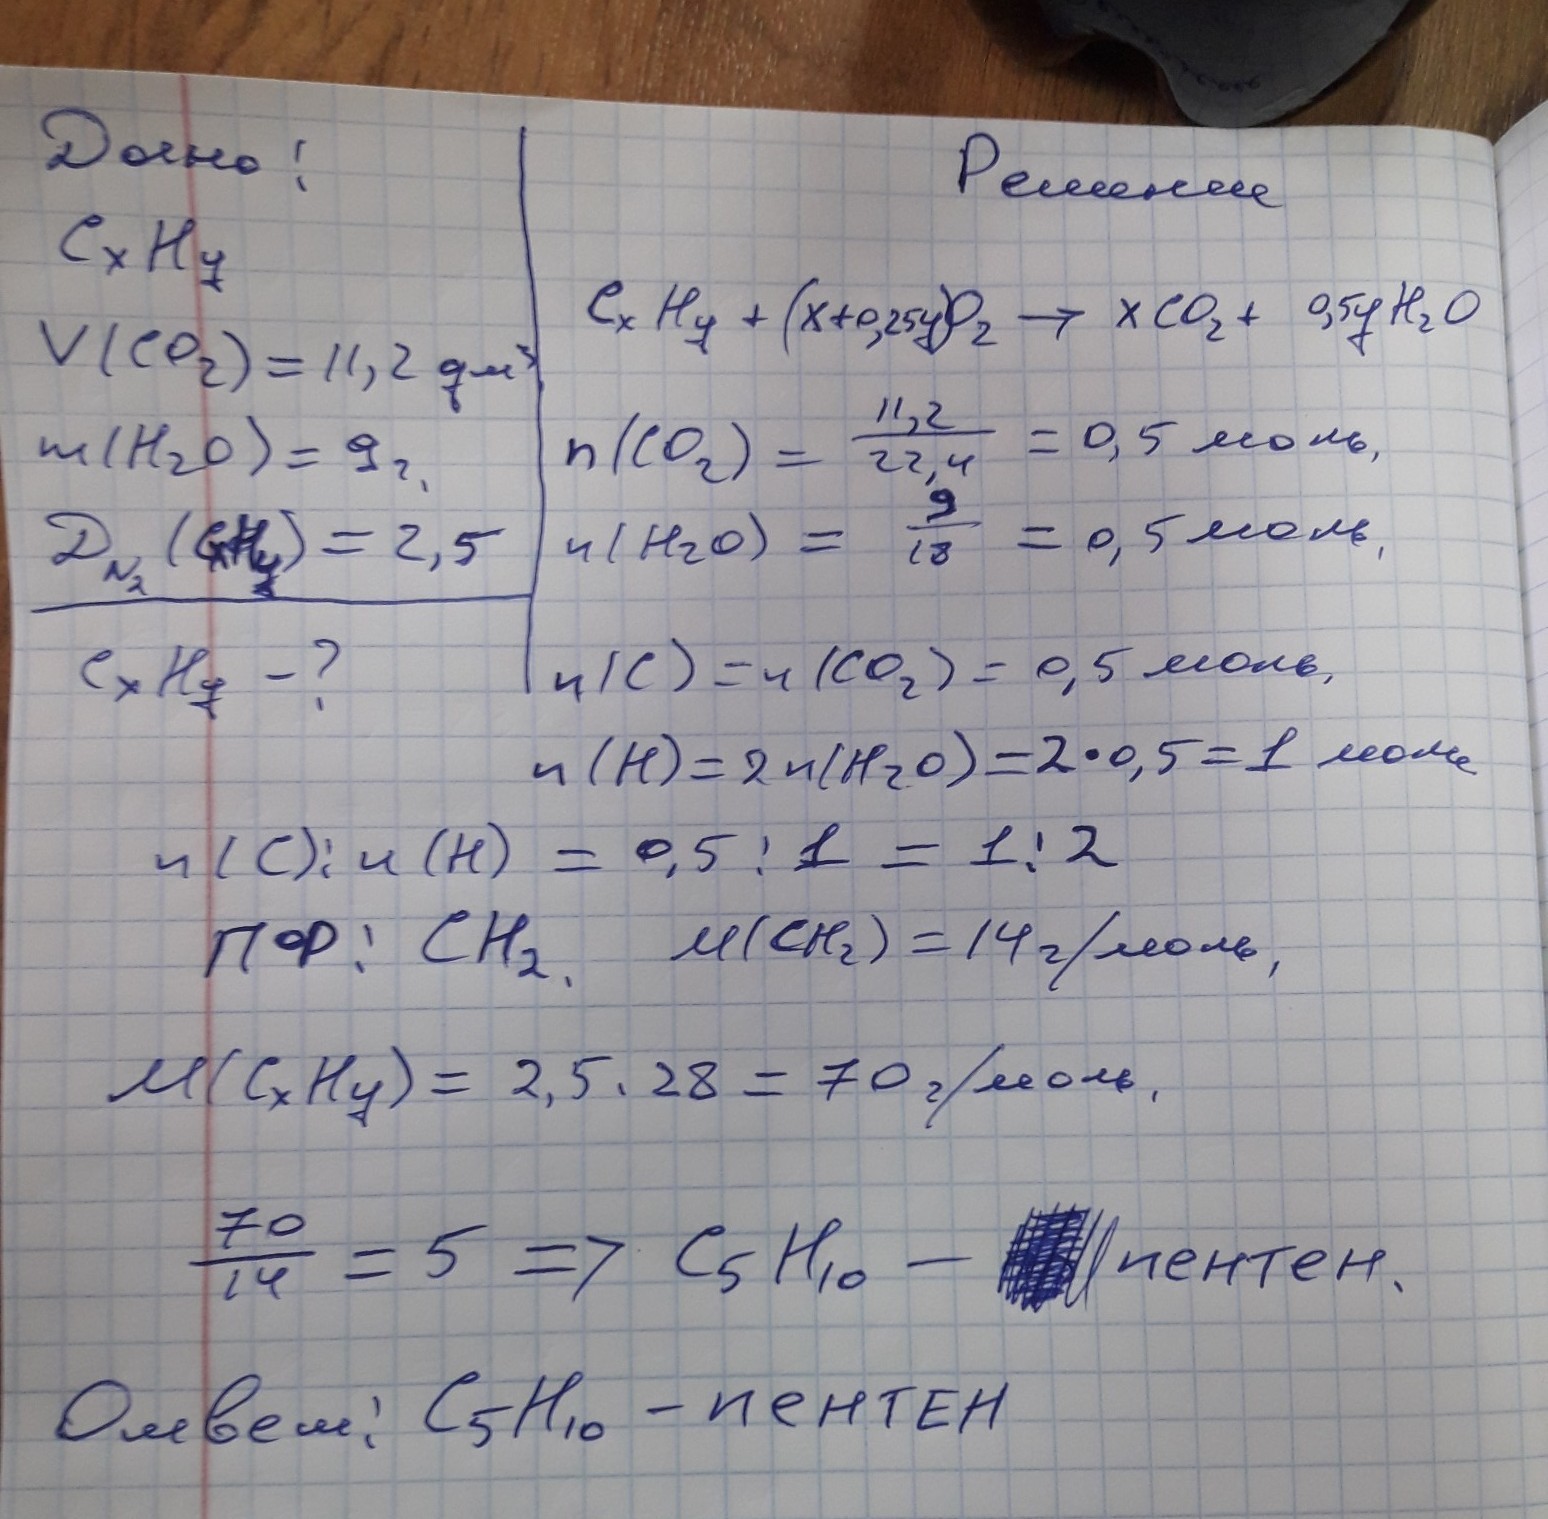 Дано:
CxHy
V(CO2) = 11,2 дм³
m(H2O) = 9г,
DN2(CxHy) = 2,5
CxHy -?
Решение
CxHy + (x+0,25y)O2 → xCO2 + 0,5yH2O
n(CO2) = 11,2/22,4 = 0,5 моль,
n(H2O) = 9/18 = 0,5 моль,
n(C) = n(CO2) = 0,5 моль,
n(H) = 2n(H2O) = 2•0,5 = 1 моль
n(C):n(H) = 0,5:1 = 1:2
ПФ: CH2, M(CH2) = 14г/моль,
M(CxHy) = 2,5.28 = 70г/моль,
70/14 = 5 => C5H10 - пентен.
Ответ: C5H10 - пентен